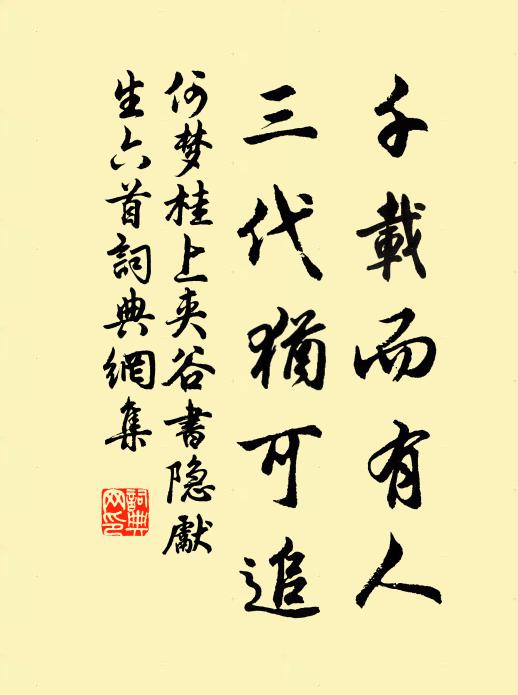 千載而有人
三代猶可追
何梦桂上夹谷書隐獻
生六首詞典網集
詞典
网印